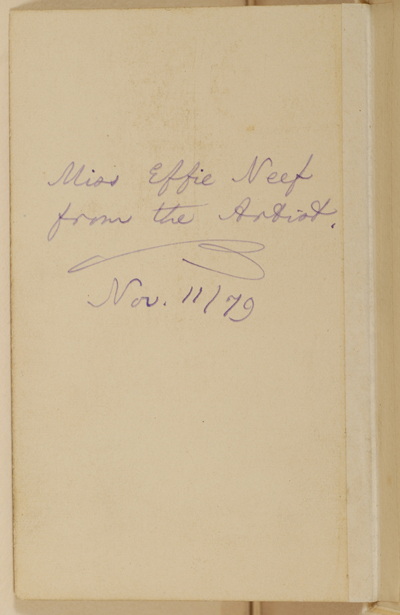 Miss Effie Neef
from the Artist.
Nov. 11/79